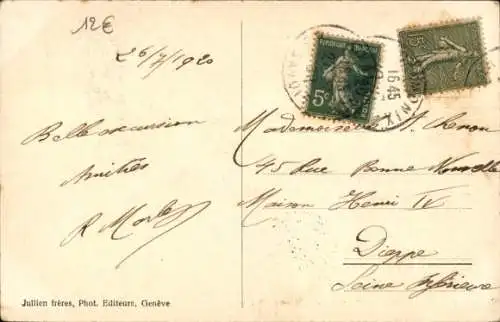 12€
26/7/1920
Belle excursion
Amitiés
R
REPUBLIQUE FRANÇAISE
5c
15c
16 45
Mademoiselle
45 Rue Bonne Nouvelle
Maison Henri IV
Dieppe
Seine Inférieure
Jullien frères, Phot. Editeurs, Genève